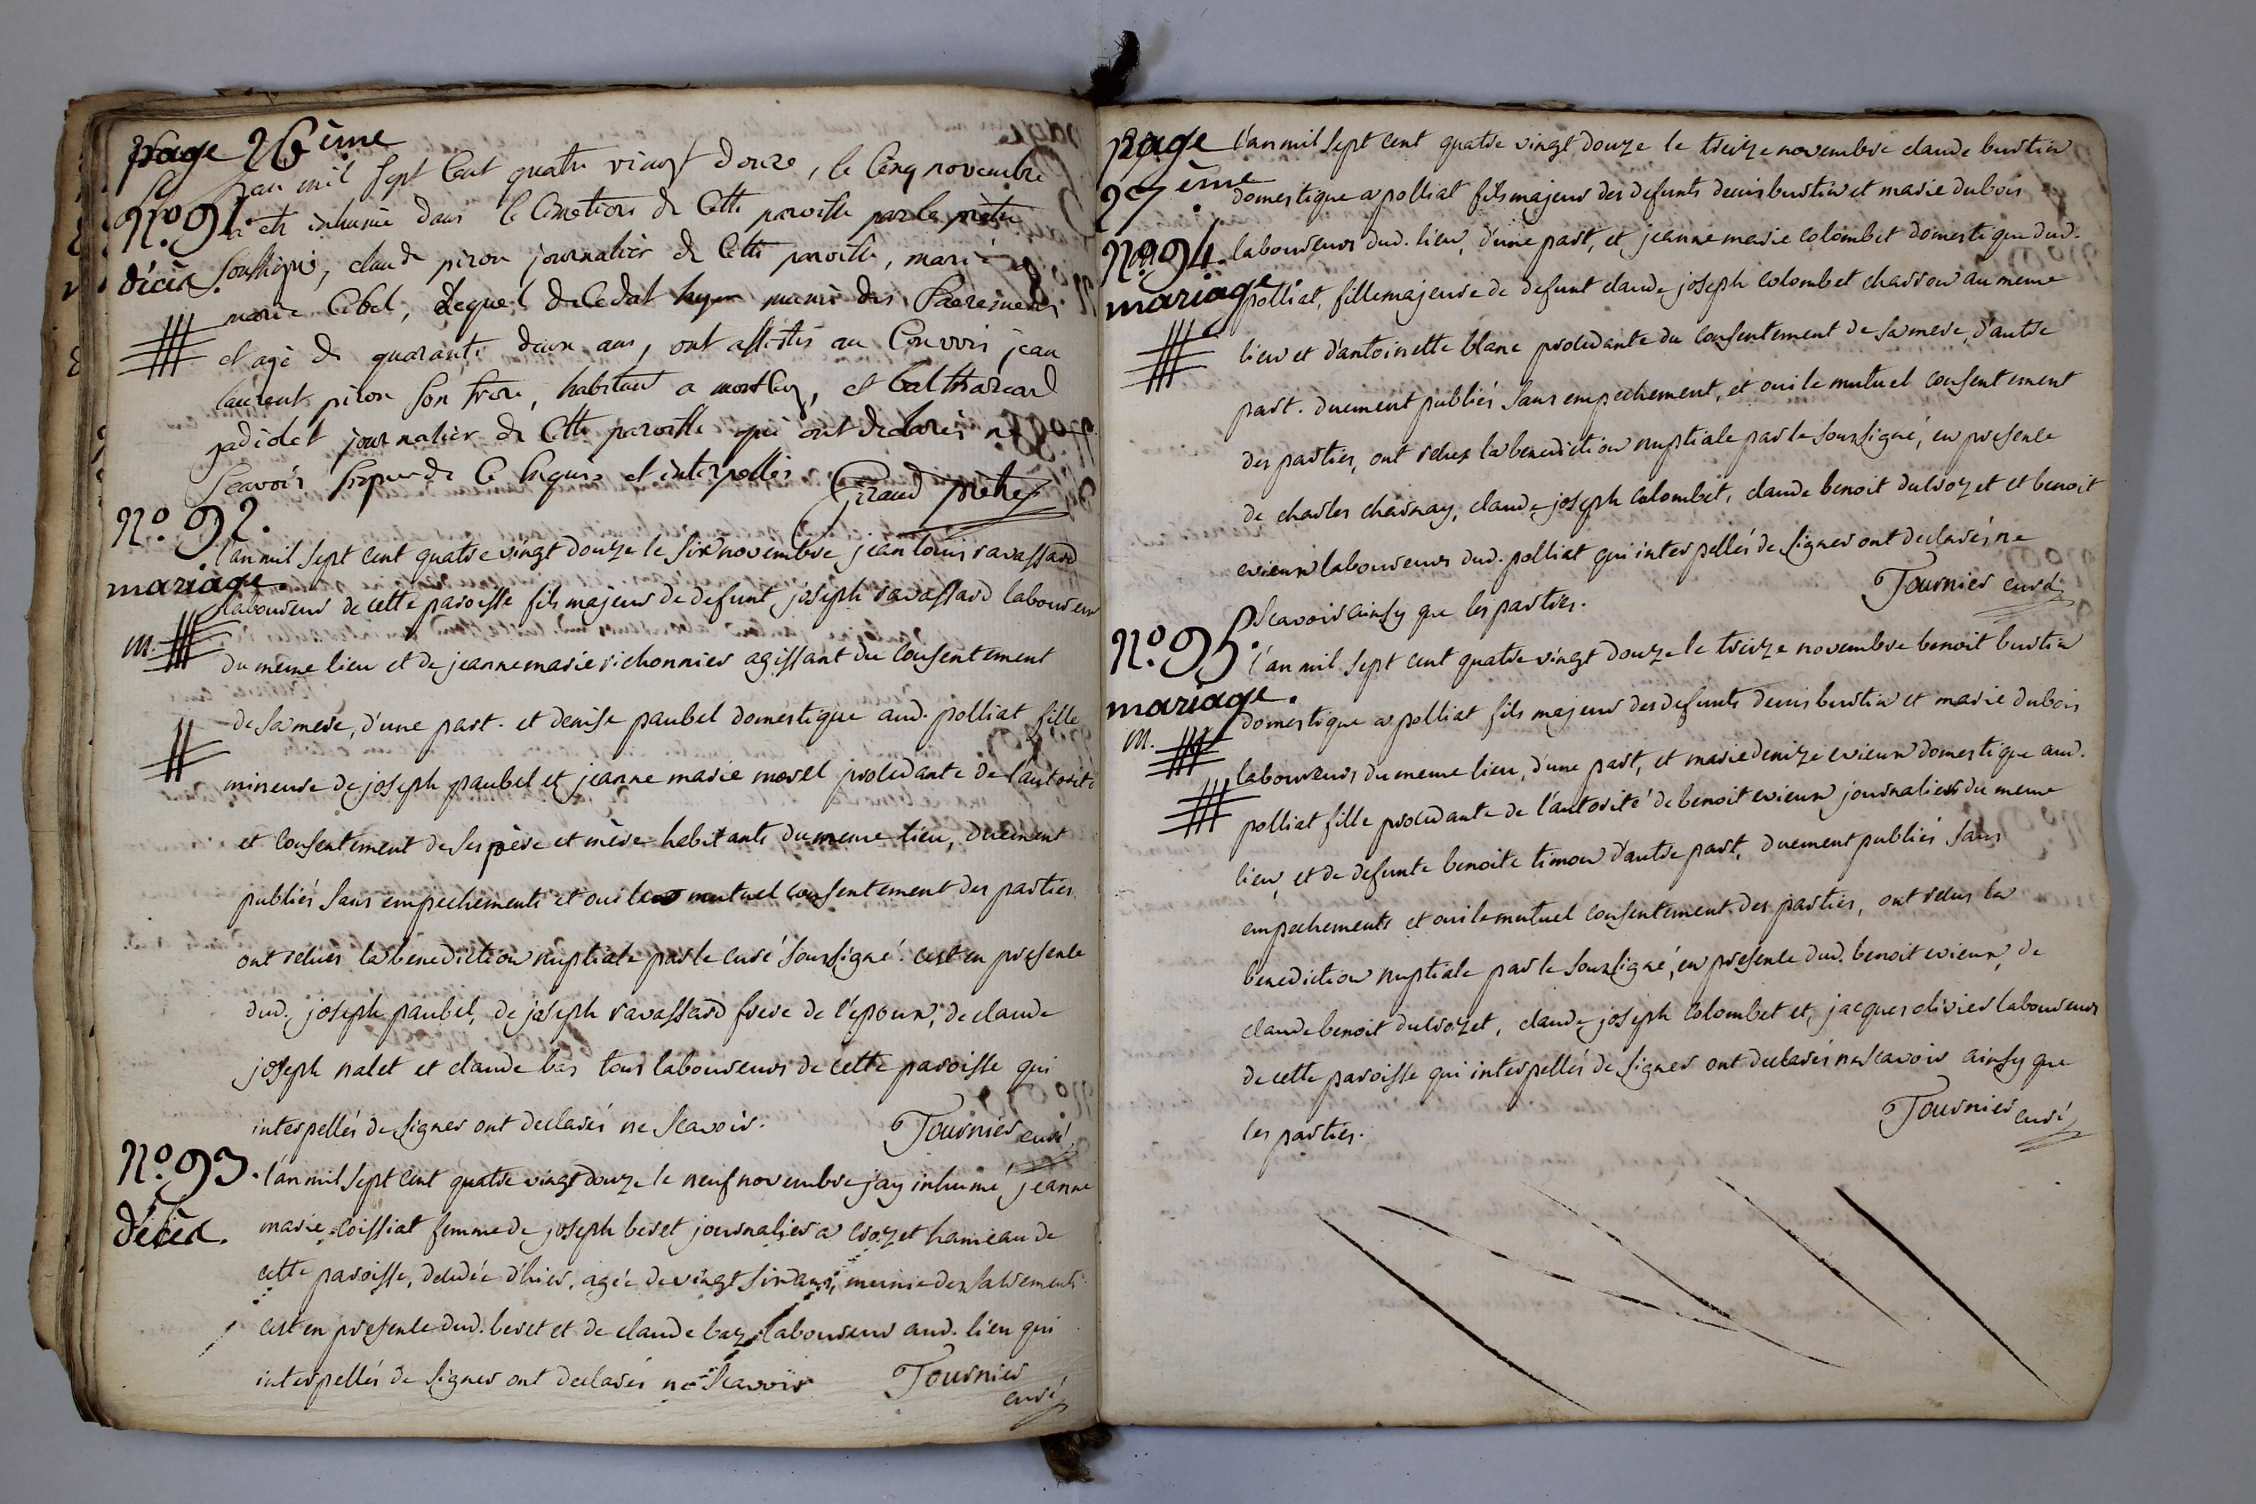 page 26ème
L'an mil sept Cent quatre vingt douze, le Cinq novembre
N.° 91.
a eté inhumé dans le Cimetiere de Cette paroisse par le prêtre
décès.
soussigné, claude piron journalier de Cette paroisse, marié a
marie Cibel, Lequel decedat hyer munis des Sacrements
et agé de quarante deux ans, ont assistés au Convoir jean
laurent piron son frere, habitant a montluy, et balthazard
jadiolet journalier de Cette paroisse qui ont declarés ne
Scavoir signer de Ce enquis et interpellés Giraud prêtre
N.° 92.
l'an mil sept cent quatre vingt douze le six novembre jean louis ravassard
mariage.
laboureur de cette paroisse fils majeur de defunt joseph ravassard laboureur
m.
du meme lieu et de jeanne marie richonnier agissant du consentement
de sa mere, d'une part. et denise paubel domestique aud. polliat fille
mineure de joseph paubel et jeanne marie morel procedante de l'autorité
et consentement de ses père et mère habitants du meme lieu, duement
publiés sans empechements et oui le mutuel consentement des parties
ont reçues la benediction nuptiale par le curé soussigné. cest en presence
dud. joseph paubel, de joseph ravassard frere de l'epoux, de claude
joseph nalet et claude bas tous laboureurs de cette paroisse qui
interpellés de signer ont declarés ne scavoir. Tournier curé
N.° 93.
l'an mil sept cent quatre vingt douze le neuf novembre j'ay inhumé jeanne
décès.
marie coissiat femme de joseph beret journalier a crozet hameau de
cette paroisse, decedée d'hier, agée de vingt six ans, munie des sacrements
cest en presence dud. beret et de claude baz laboureur aud. lieu qui
interpellés de signer ont declarés ne scavoir Tournier
curé
page 27ème
l'an mil sept cent quatre vingt douze le treize novembre claude burtin
domestique a polliat fils majeur des defunts denis burtin et marie dubois
N.° 94.
laboureurs dud. lieu, d'une part, et jeanne marie colombet domestique dud.
mariage
polliat, fille majeure de defunt claude joseph colombet charron au meme
lieu et d'antoinette blanc procedante du consentement de sa mere, d'autre
part. duement publiés sans empechement, et oui le mutuel consentement
des parties, ont reçus la benediction nuptiale par le soussigné, en presence
de charles charnay, claude joseph colombet, claude benoit ducrozet et benoit
evieux laboureurs dud. polliat qui interpellés de signer ont declarés ne
scavoir ainsy que les parties. Tournier curé
N.° 95.
l'an mil sept cent quatre vingt douze le treize novembre benoit burtin
mariage.
domestique a polliat fils majeur des defunts denis burtin et marie dubois
m.
laboureurs du meme lieu, d'une part, et marie denize evieux domestique aud.
polliat fille procedante de l'autorité de benoit evieux journalier du meme
lieu, et de defunte benoite timon d'autre part, duement publiés sans
empechements et oui le mutuel consentement des parties, ont reçus la
benediction nuptiale par le soussigné, en presence dud. benoit evieux, de
claude benoit ducrozet, claude joseph colombet et, jacques olivier laboureurs
de cette paroisse qui interpellés de signer ont declarés ne scavoir ainsy que
les parties. Tournier curé